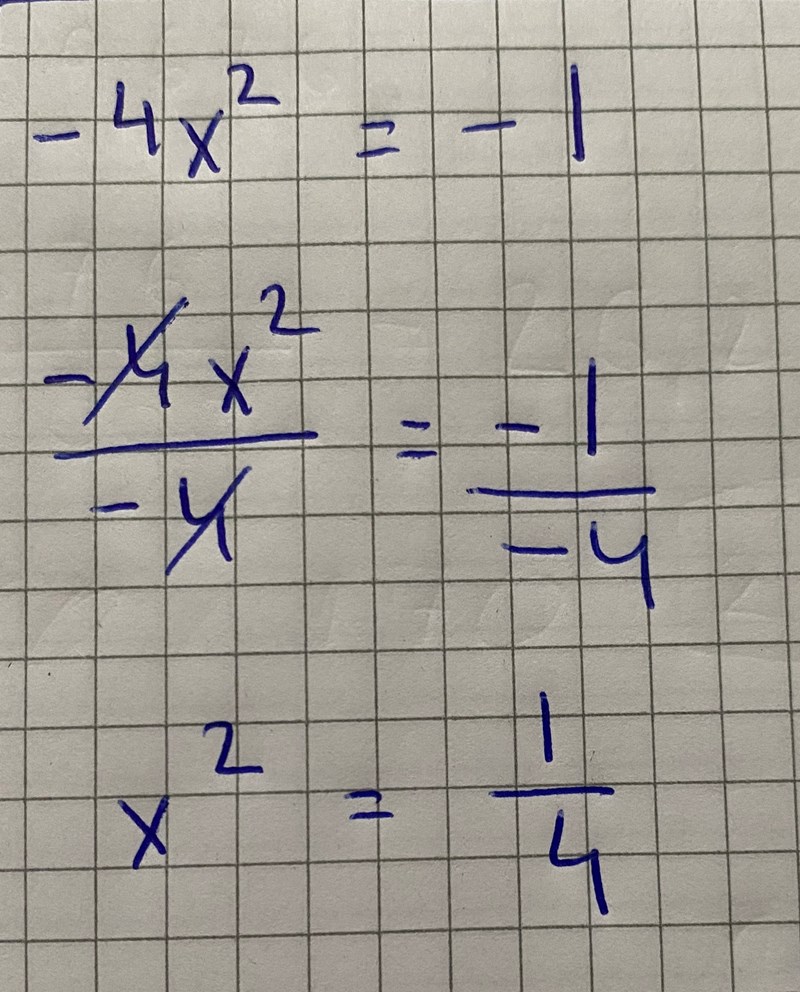 -4x² = -1
-4x²/-4 = -1/-4
x² = 1/4